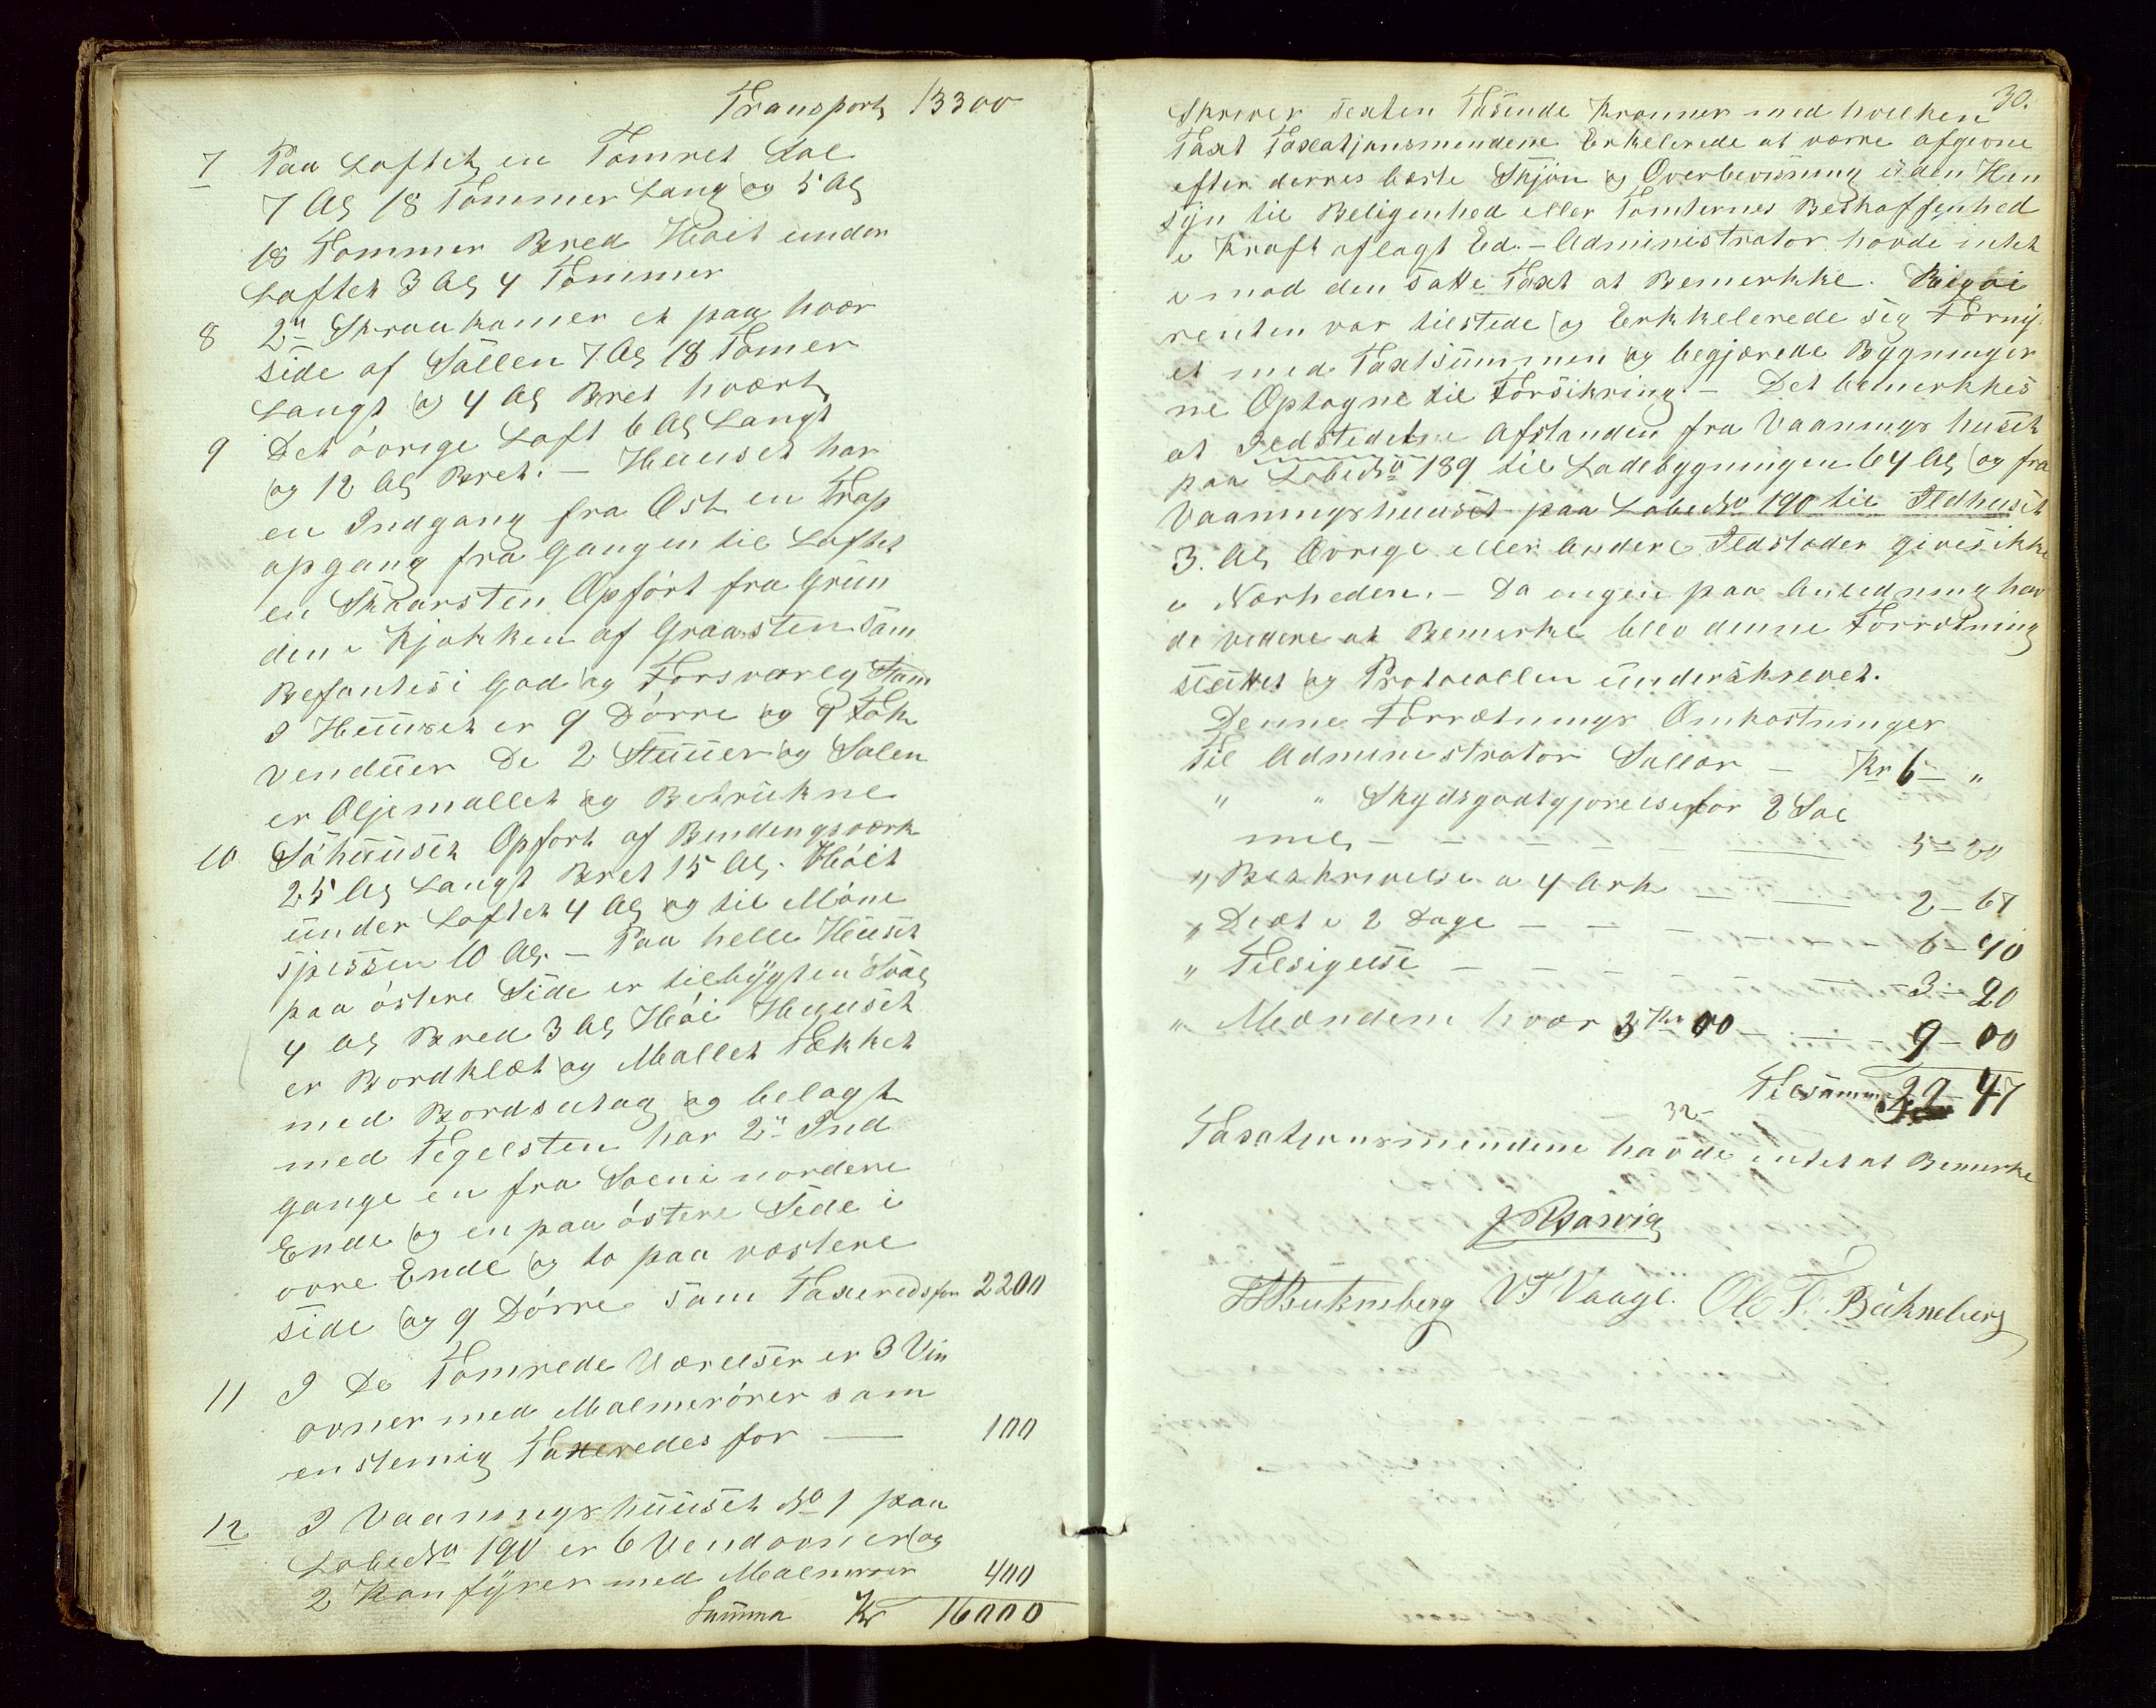 Transport 13300
7 Paa Loftet en Tømret Sal
7 Al 18 Tommer Lang og 5 Al
18 Tommer Bred Høit under
Loftet 3 Al 4 Tommer
8 2" Skraakamer et paa hver
side af Sallen 7 Al 18 Tomer
Langt og 4 Al Bret hvært
9 Det øvrige Loft 6 Al Langt
og 12 Al Bret. – Huuset har
en Indgang fra Øst en Trap
opgang fra Gangen til Loftet
en Skaarsten Opført fra Grün
den i Kjøkken af Graasten sam
Befantes i God og Forsvarlig Stan
I Huuset er 9 Dørre og 9 Fak
venduer De 2 Stuuer og Salen
er Oljemallet og Betrükne
10 Søhuuset Opført af Bindingsværk
25 Al Langt Bret 15 Al. Høit
under Loftet 4 Al og til Møne
spessen 10 Al. – Paa helle Huset
paa østere Side er tilbygt en Sval
4 Al Bred 3 Al Høi Huuset
er Bordklæt og Mallet Tækket
med Bordsutag og belagt
med Tegelsten har 2" Ind
gange en fra Søen i nordere
Ende og en paa østere Side i
øvre Ende og to paa væstere
side og 9 Dørre sam Taxeredes for 2200
11 I De Tømrede Værelser er 3 Vin
ovner med Malmerører sam
enstemig Taxeredes for — 100
12 I Vaaningshuuset No 1 paa
Løbe No 190 er 6 Vendovner og
2 Konfyrer med Malmrører 400
Summa Kr 16000
30.
Skriver sexten Tusende Kronner med hvilken
Taxt Taxatjonsmendene Erkelerede at være afgivne
efter derres beste Skjøn og Overbevisning uden Hen
syn til Beligenhed eller Tomternes Beskaffenhed
i Kraft aflagt Ed. – Administrator havde intet
imod den satte Taxt at Bemerkke.
renten var tilstede og Erkkelerede sig Fornøi
et med Taxtsummen og begjærede Bygninger
ne Optagne til Forsikring. – Det bemerkkes
at Ildstedetne Afstanden fra Vaanings huset
paa Løbe No 189 til Ladebygningen 64 Al og fra
Vaaningshuuset paa Løbe No 190 til Ildhuset
3. Al Øvrige eller Andere Ildstæder gives ikke
i Nærheden. – Da ingen paa Anledning hav
de videre at Bemerke blev denne Forrætning
sluttet og Protocollen underskrevet.
Denne Forrætnings Omkostninger
til Administrator Sallær – Kr 6 – "
" " Skydsgodtgjørelse for 2 Søe
mil – – – – 5 – 20
" Beskrivelse a 4 Ark – – 2 – 67
" Diæt i 2 Dage – – – 6 – 40
" Tilsigelse – – – – 3 – 20
" Mændene hver 3 Kr 00 – – – 9 – 00
Tilsamme 32 – 47
Taxationsmendene havde intet at Bemerke
V T Vaage. Ole T. Bökneberg